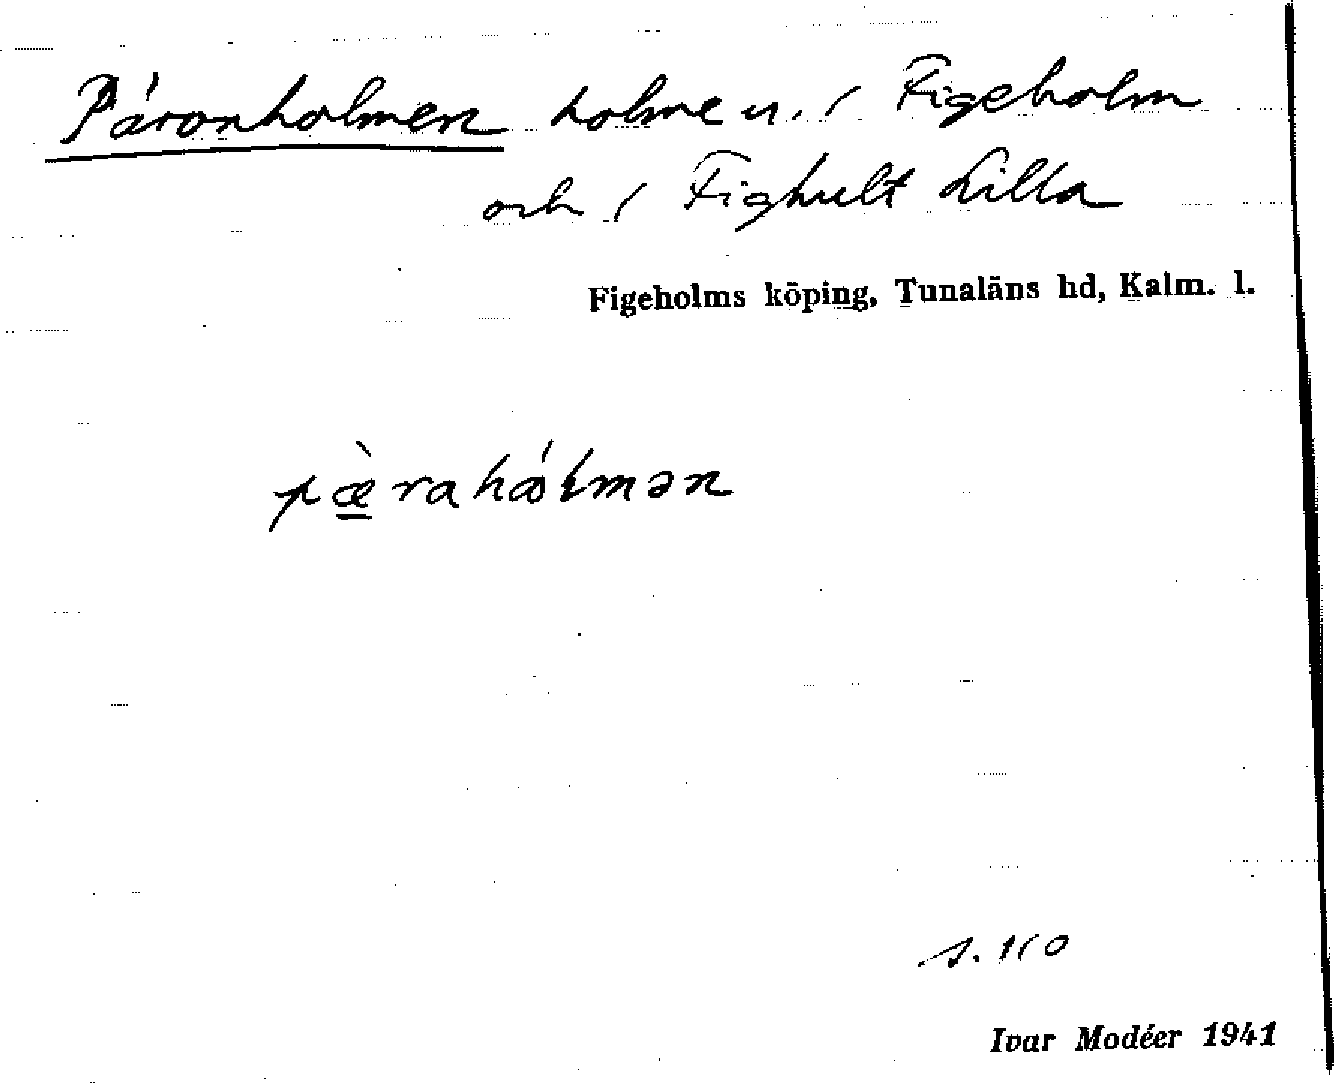 Päronholmen holme u. i Figeholm
och i Fighult Lilla
Figeholms köping, Tunaläns hd, Kalm. l.
pæ̀rahólmən
s. 110
Ivar Modéer 1941